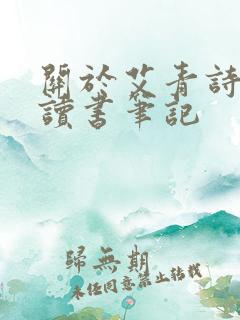 關於艾青詩
讀書筆記
歸無期
未經同意禁止轉載